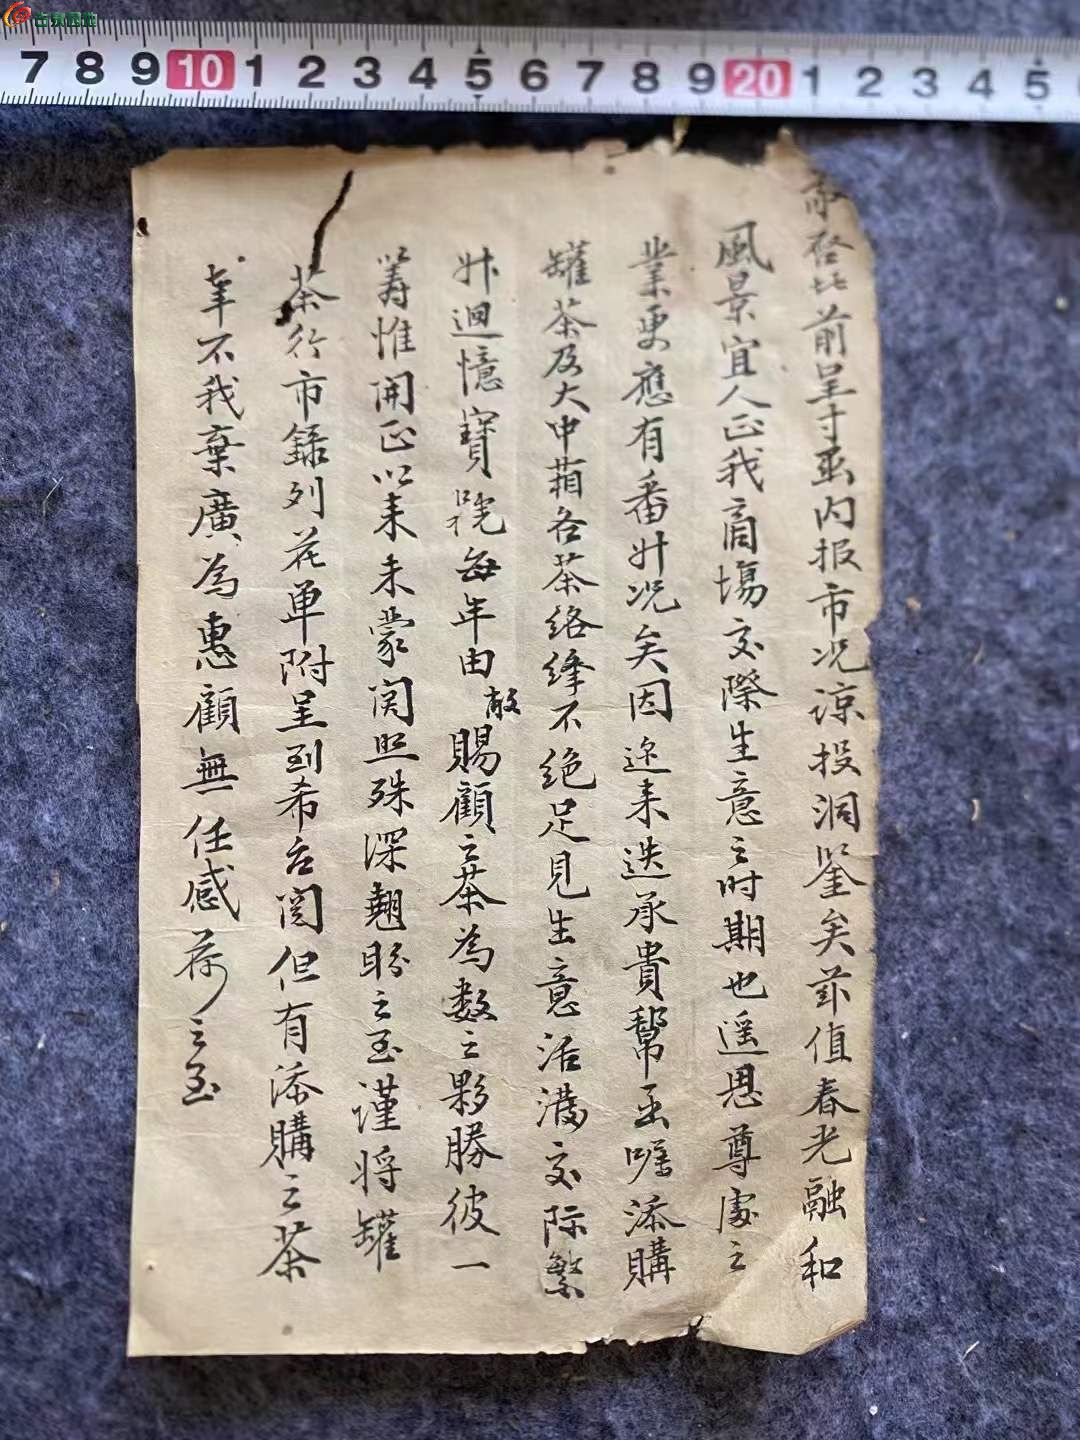 古泉园地
7 8 9 10 1 2 3 4 5 6 7 8 9 20 1 2 3 4 5
敬啓比前呈寸函内报市况谅投洞鉴矣兹值春光融和
風景宜人正我商場交際生意之时期也遥思尊處之
業更應有番升况矣因迩来迭承貴幫函嘱添購
罐茶及大中箱各茶络绎不绝足見生意活潑交际繁
升迴憶寶號每年由敝賜顧之茶為数之夥勝彼一
籌惟開正以来未蒙関照殊深翹盼之至谨将罐
茶行市録列花单附呈到希台阅但有添購之茶
幸不我棄廣為惠顧無任感荷之至